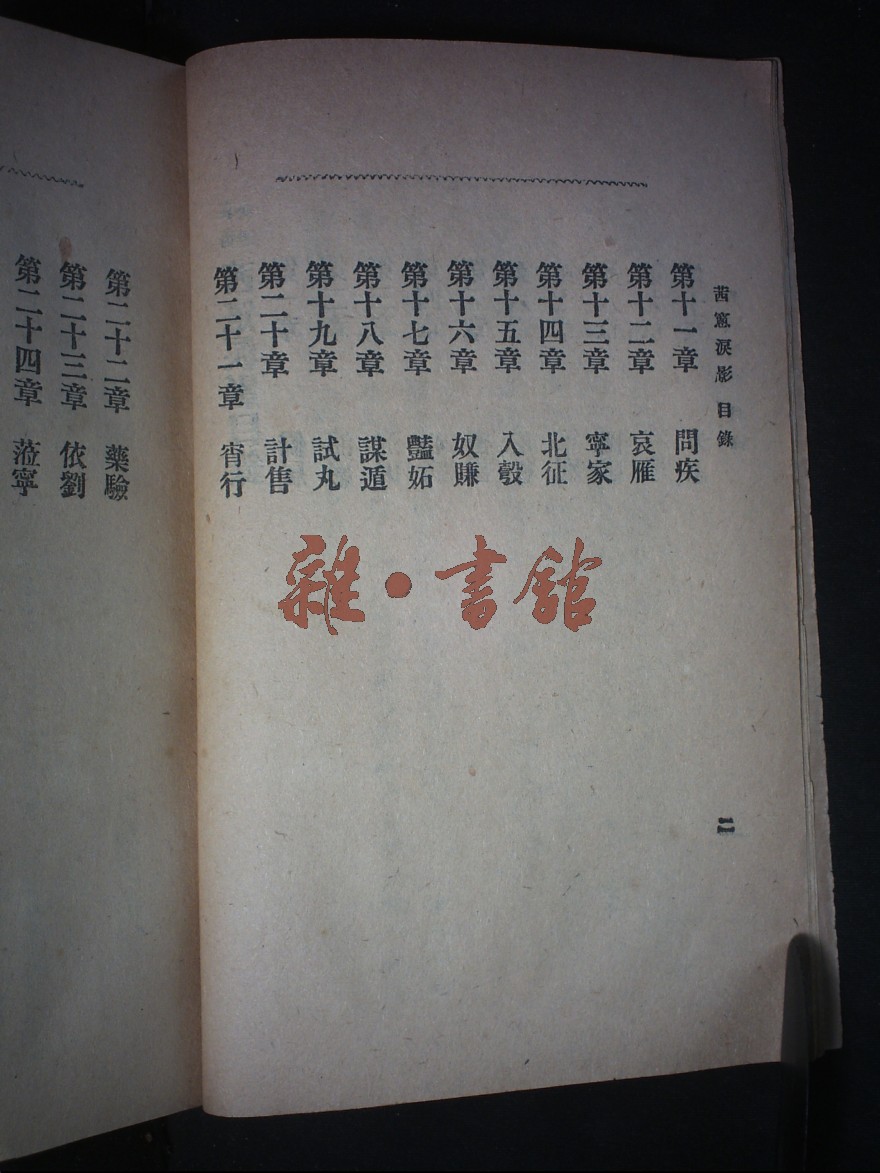 茜窻淚影 目錄
第十一章 問疾
第十二章 哀雁
第十三章 寧家
第十四章 北征
第十五章 入彀
第十六章 奴賺
第十七章 豔妬
第十八章 謀遁
第十九章 試丸
第二十章 計售
第二十一章 宵行
二
第二十二章 藥驗
第二十三章 依劉
第二十四章 蒞寧
雜·書館